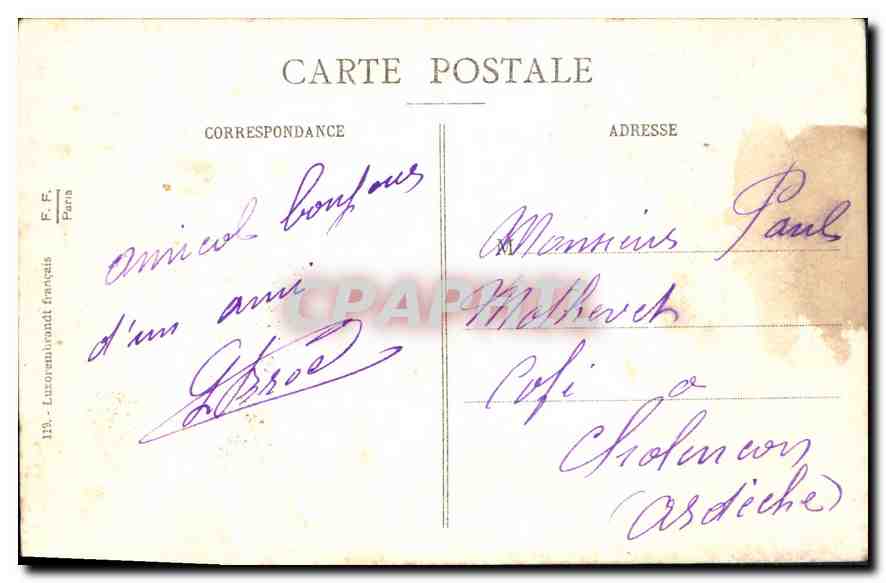 CARTE POSTALE
CORRESPONDANCE
amical bonjour
d'un ami
ADRESSE
M
Monsieur Paul
Malhevet
Café a
Chalencon
(Ardèche)
119. - Luxorembrandt français F. F. Paris
CPAPHIL